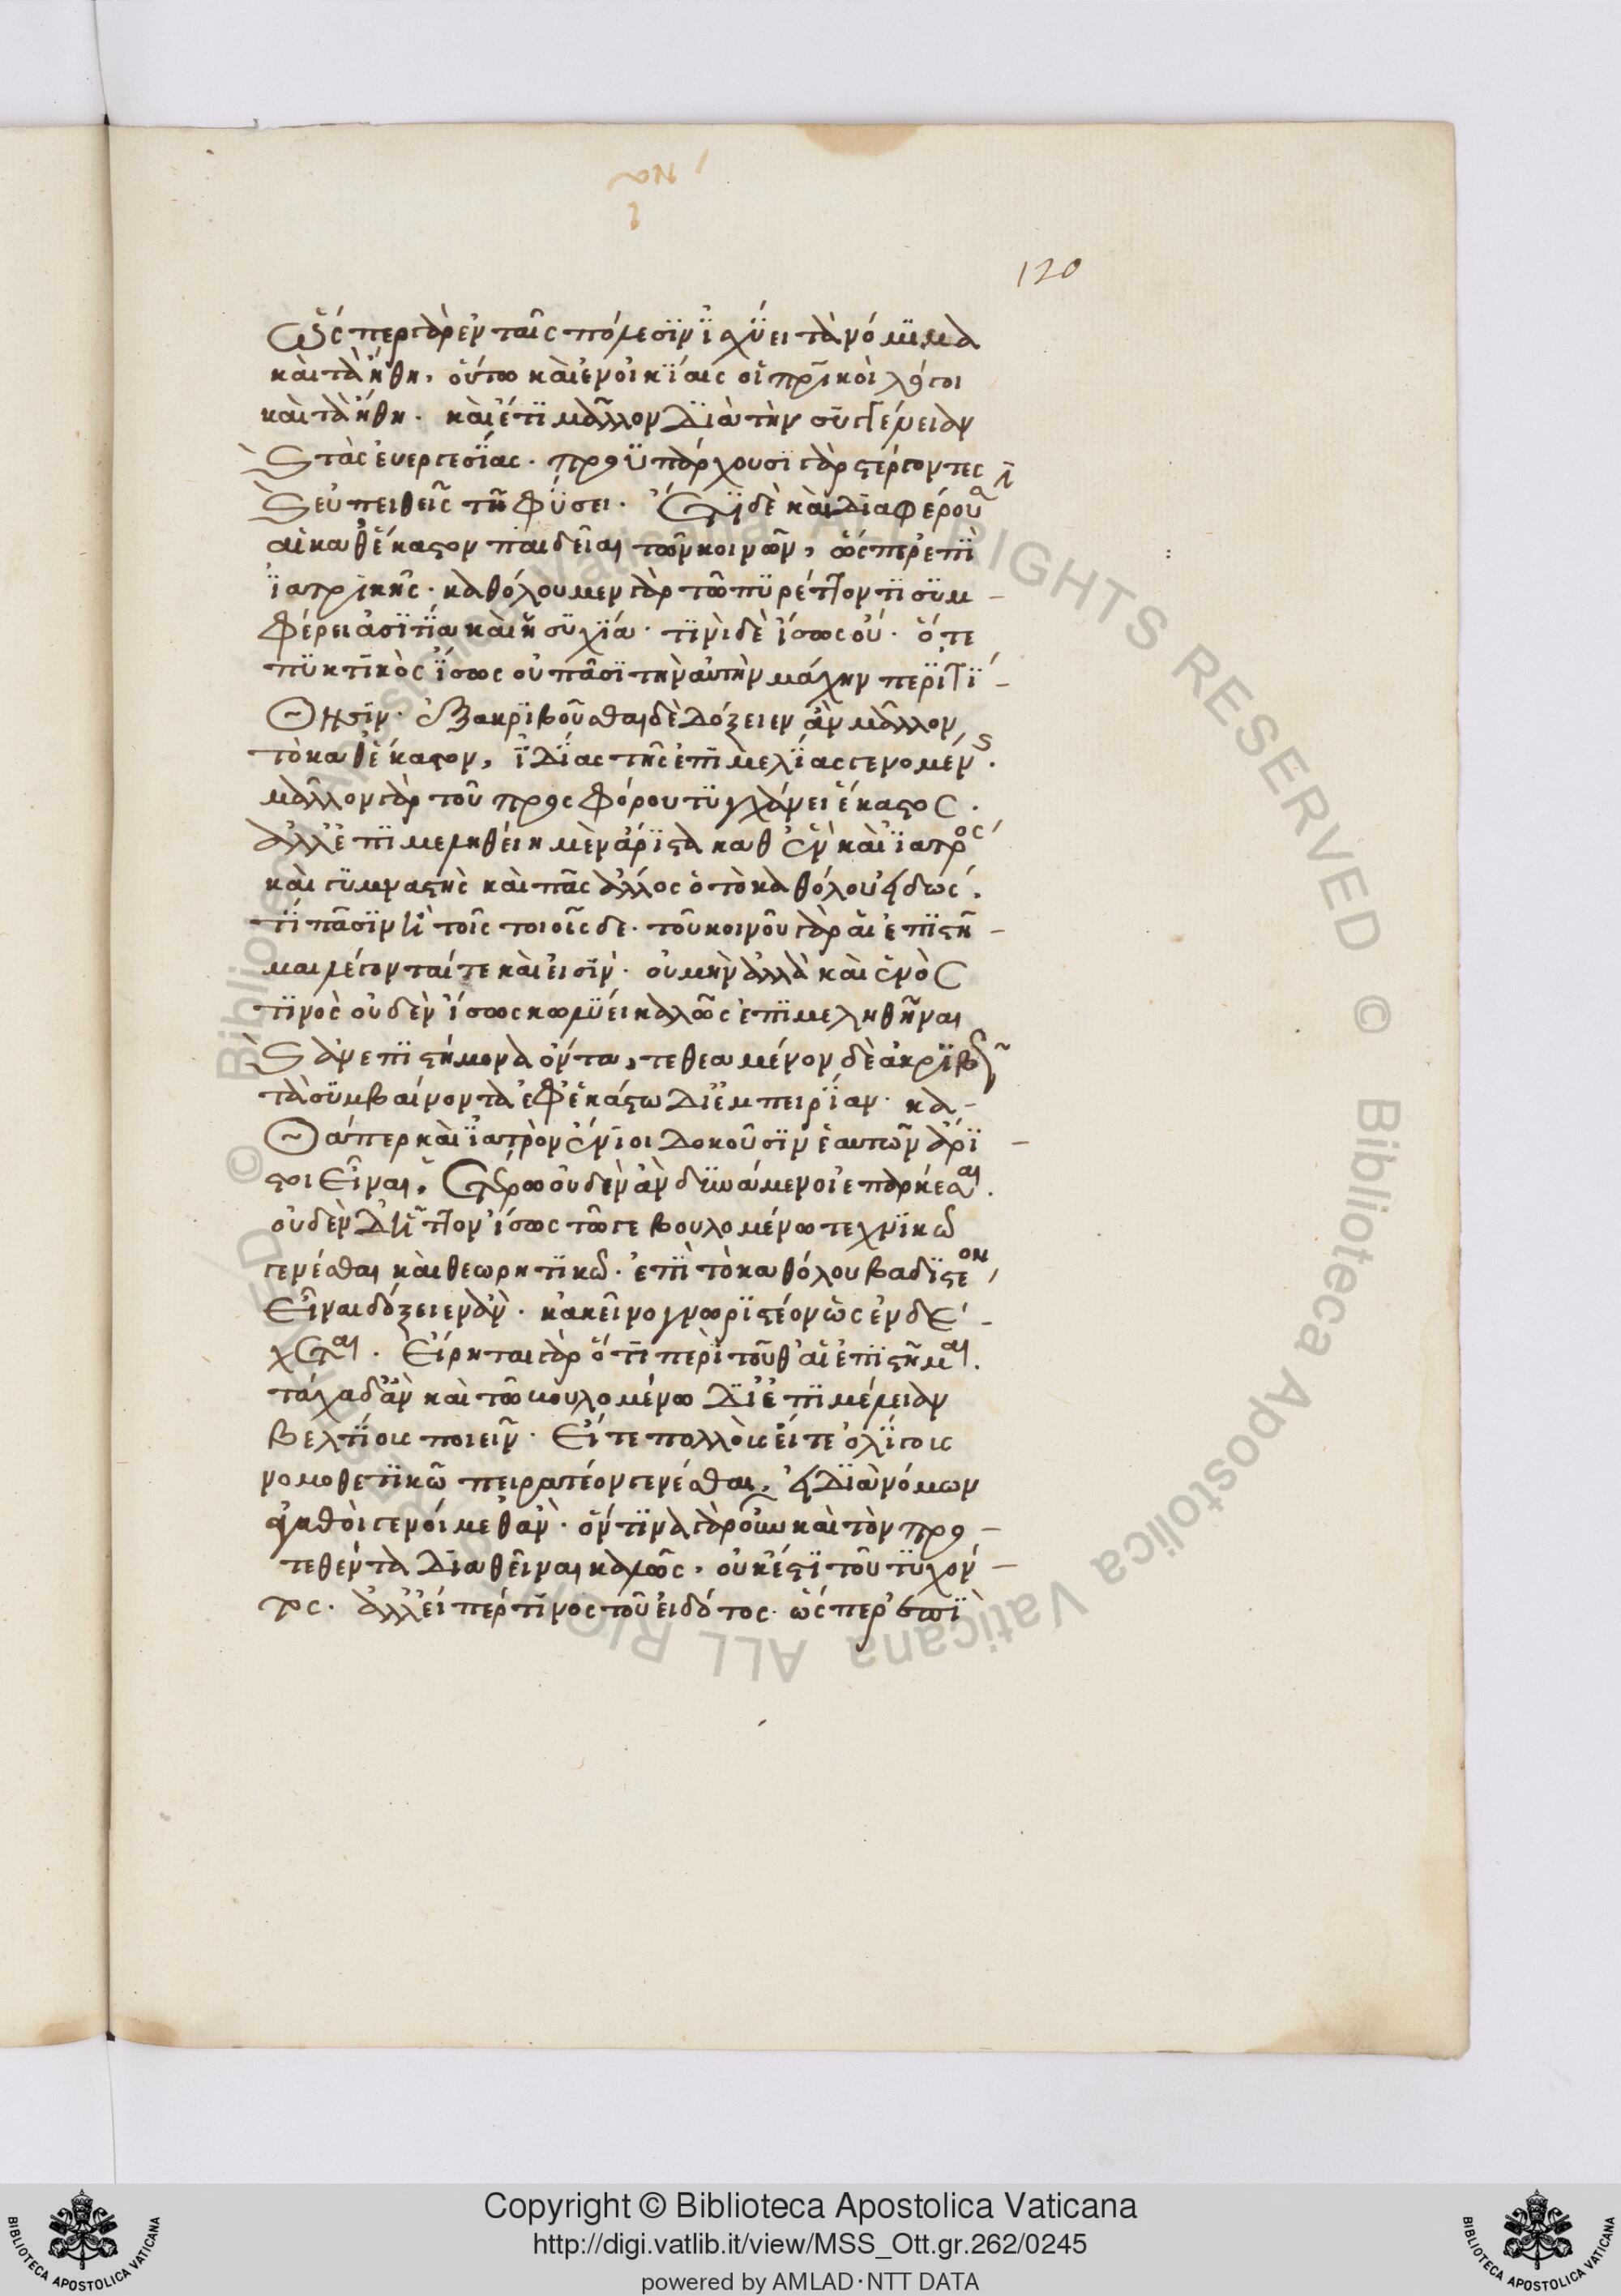 120
ὥσπερ γὰρ ἐν ταῖς πόλεσιν ἰσχύει τὰ νόμιμα
καὶ τὰ ἤθη, οὕτω καὶ ἐν οἰκίαις οἱ πατρικοὶ λόγοι
καὶ τὰ ἤθη. καὶ ἔτι μᾶλλον διὰ τὴν συγγένειαν
καὶ τὰς εὐεργεσίας. προϋπάρχουσι γὰρ στέργοντες
καὶ εὐπειθεῖς τῇ φύσει. ἔτι δὲ καὶ διαφέρουσιν
αἱ καθ' ἕκαστον παιδεῖαι τῶν κοινῶν, ὥσπερ ἐπὶ
ἰατρικῆς. καθόλου μὲν γὰρ τῷ πυρέττοντι συμ-
φέρει ἀσιτία καὶ ἡσυχία. τινὶ δὲ ἴσως οὔ. ὅ τε
πυκτικὸς ἴσως οὐ πᾶσι τὴν αὐτὴν μάχην περιτί-
θησιν. ἐξακριβοῦσθαι δὲ δόξειεν ἂν μᾶλλον
τὸ καθ' ἕκαστον, ἰδίας τῆς ἐπιμελείας γενομένης.
μᾶλλον γὰρ τοῦ προσφόρου τυγχάνει ἕκαστος.
ἀλλ' ἐπιμεληθείη μὲν ἄριστα καθ' ἓν καὶ ἰατρὸς
καὶ γυμναστὴς καὶ πᾶς ἄλλος ὁ τὸ καθόλου εἰδώς,
τί πᾶσιν ἢ τοῖς τοιοῖσδε. τοῦ κοινοῦ γὰρ αἱ ἐπιστῆ-
μαι λέγονταί τε καὶ εἰσίν. οὐ μὴν ἀλλὰ καὶ ἑνός
τινος οὐδὲν ἴσως κωλύει καλῶς ἐπιμεληθῆναι
καὶ ἀνεπιστήμονα ὄντα, τεθεαμένον δὲ ἀκριβῶς
τὰ συμβαίνοντα ἐφ' ἑκάστῳ δι' ἐμπειρίαν. κα-
θάπερ καὶ ἰατρὸν ἔνιοι δοκοῦσιν ἑαυτῶν ἄρι-
στοι εἶναι, ἑτέρῳ οὐδὲν ἂν δυνάμενοι ἐπαρκέσαι.
οὐδὲν δ' ἧττον ἴσως τῷ γε βουλομένῳ τεχνικῷ
γενέσθαι καὶ θεωρητικῷ. ἐπὶ τὸ καθόλου βαδιστέον
εἶναι δόξειεν ἄν. κἀκεῖνο γνωριστέον ὡς ἐνδέ-
χεται. εἴρηται γὰρ ὅτι περὶ τοῦθ' αἱ ἐπιστῆμαι.
τάχα δ' ἂν καὶ τῷ βουλομένῳ δι' ἐπιμελείαν
βελτίους ποιεῖν. εἴτε πολλοὺς εἴτε ὀλίγους
νομοθετικῷ πειρατέον γενέσθαι, εἰ διὰ νόμων
ἀγαθοὶ γενοίμεθ' ἄν. ὅντινα γὰρ οὖν καὶ τὸν προ-
τεθέντα διαθεῖναι καλῶς, οὐκ ἔστι τοῦ τυχόν-
τος. ἀλλ' εἴπερ τινὸς τοῦ εἰδότος. ὥσπερ ἐπὶ
Copyright © Biblioteca Apostolica Vaticana
http://digi.vatlib.it/view/MSS_Ott.gr.262/0245
powered by AMLAD·NTT DATA
BIBLIOTECA APOSTOLICA VATICANA
BIBLIOTECA APOSTOLICA VATICANA